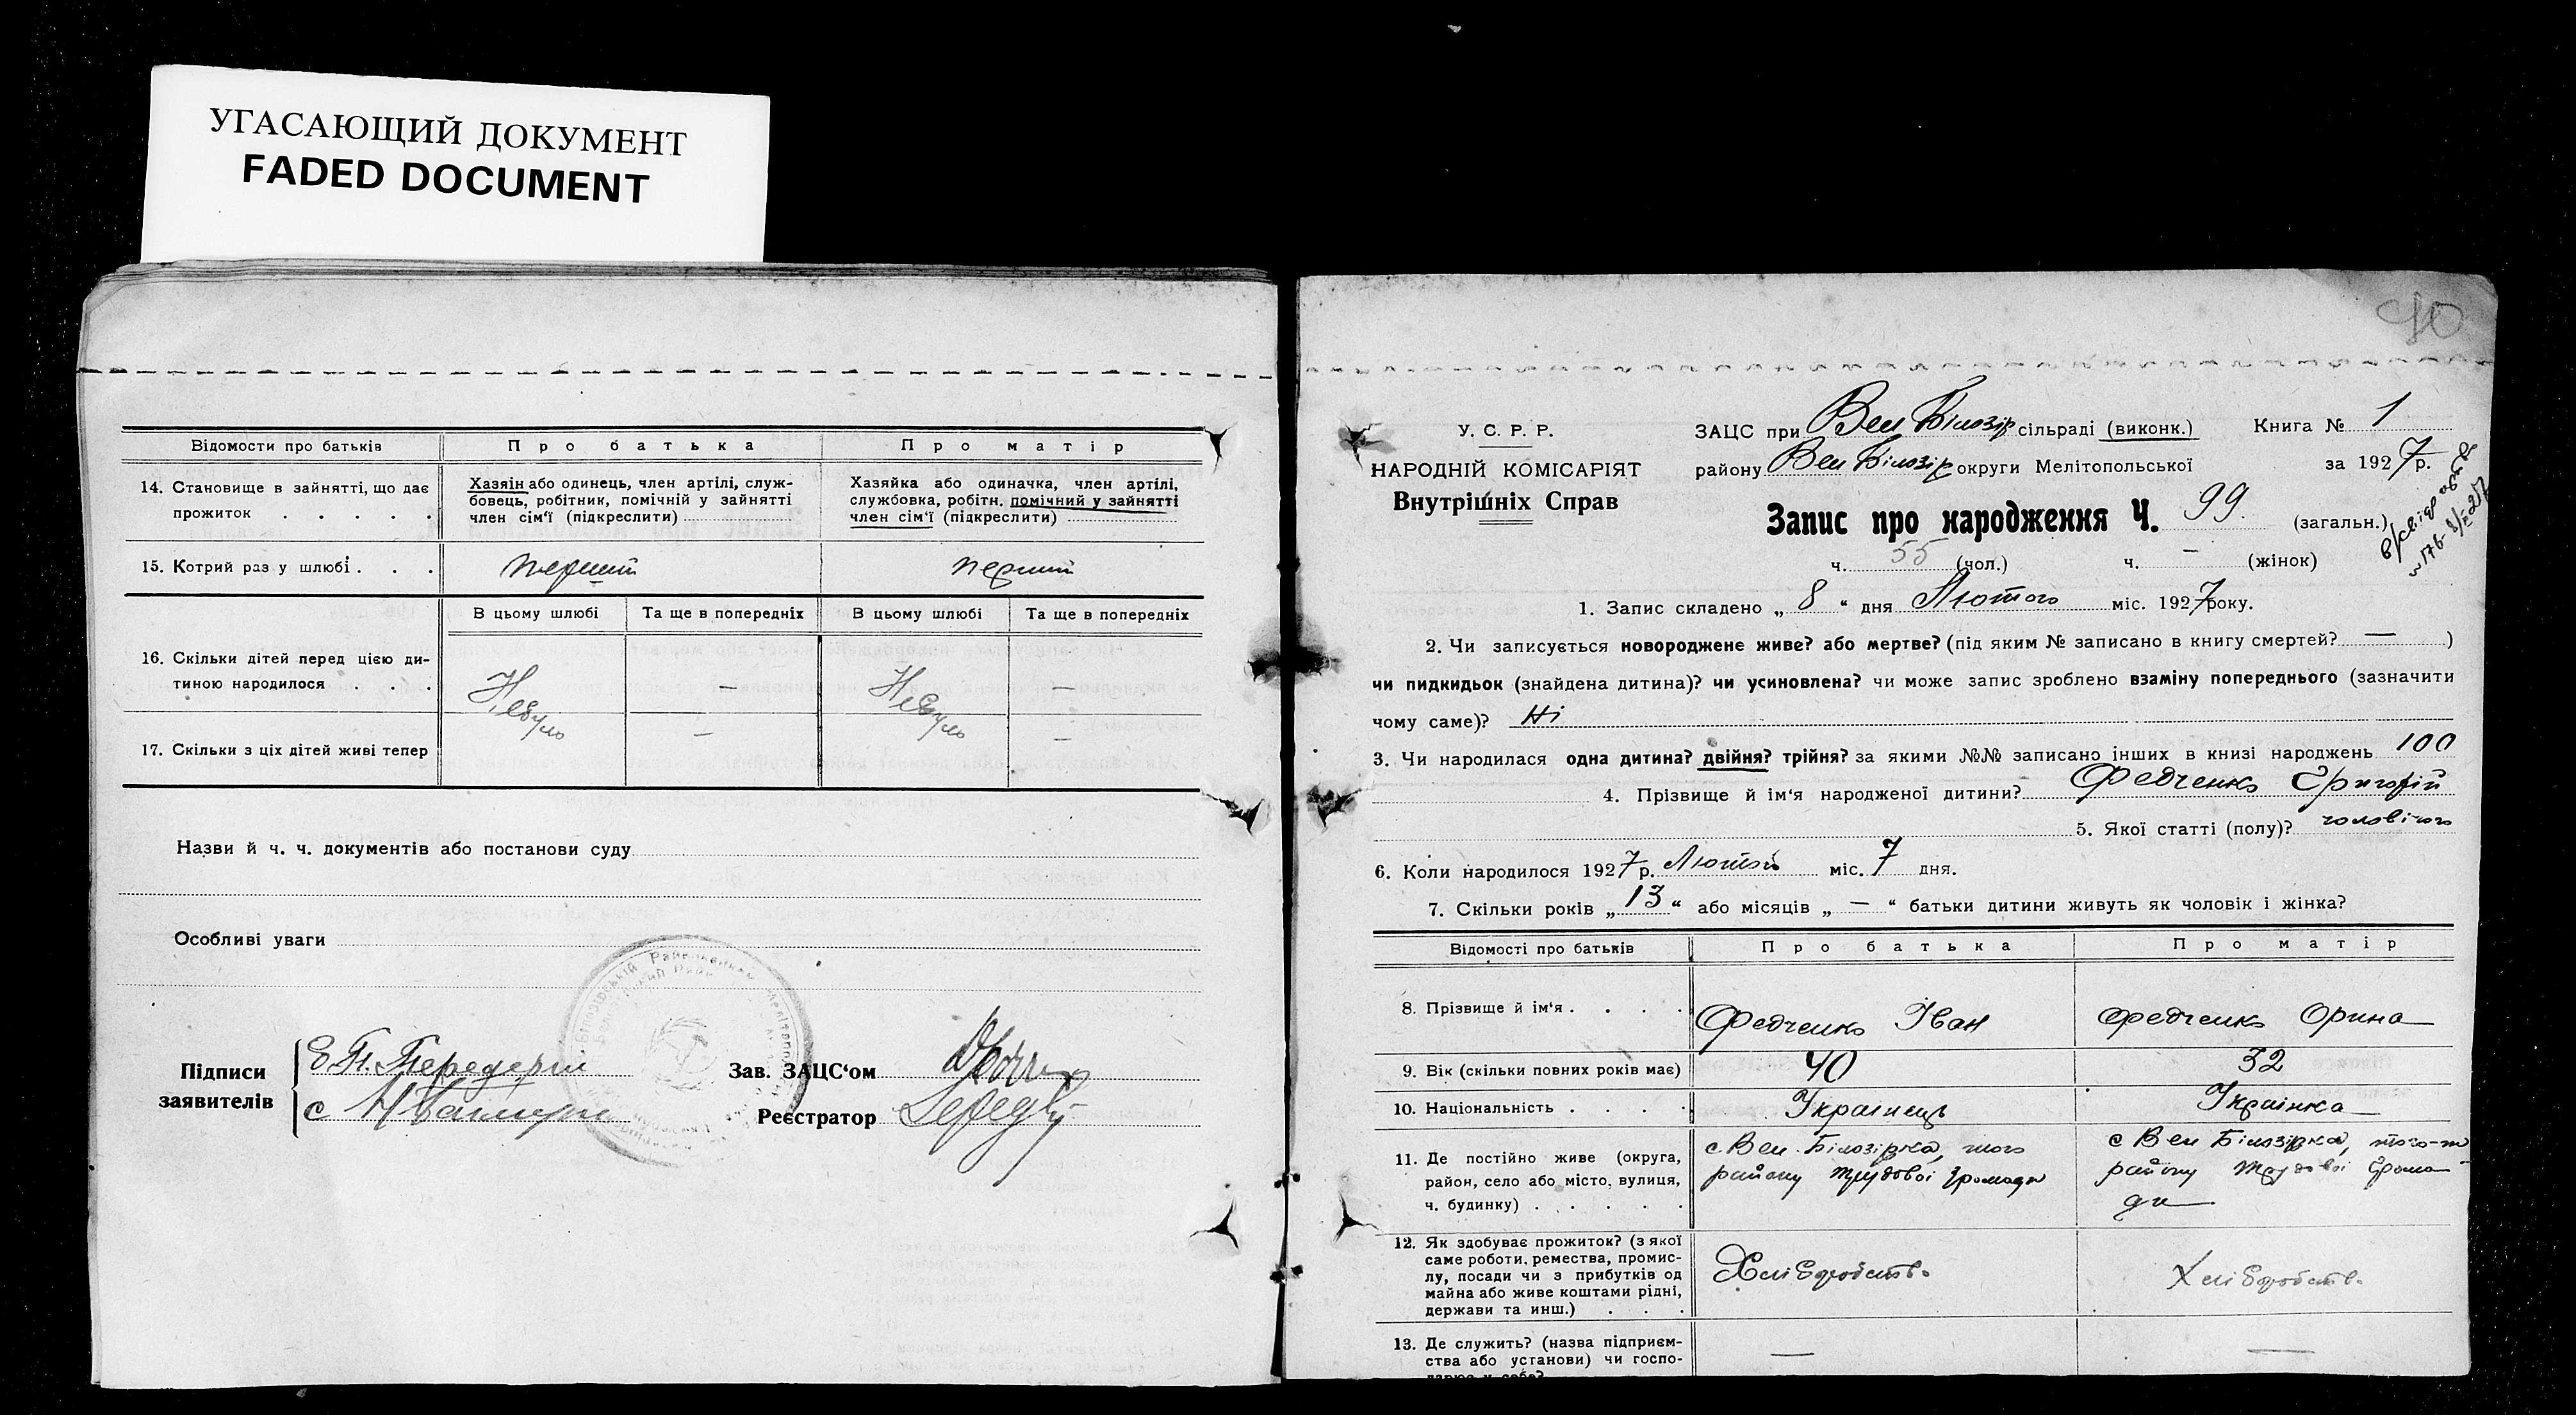 УГАСАЮЩИЙ ДОКУМЕНТ
FADED DOCUMENT
Відомости про батьків
Про батька
Про матір
14. Становище в зайнятті, що дає
прожиток . . . . .
Хазяін або одинець, член артілі, служ-
бовець, робітник, помічній у зайнятті
член сім'ї (підкреслити)
Хазяйка або одиначка, член артілі,
службовка, робітн. помічний у зайнятті
член сім'ї (підкреслити)
15. Котрий раз у шлюбі . . .
перший
перший
В цьому шлюбі
Та ще в попередніх
В цьому шлюбі
Та ще в попередніх
16. Скільки дітей перед цією ди-
тиною народилося . . .
Небуло
—
Небуло
—
17. Скільки з ціх дітей живі тепер
—
—
Назви й ч. ч. документів або постанови суду
Особливі уваги
Підписи
заявителів
Зав. ЗАЦС'ом
Реєстратор
40
У. С. Р. Р.
НАРОДНІЙ КОМІСАРІЯТ
Внутрішніх Справ
ЗАЦС при Вел Білозір сільраді (виконк.)
Книга № 1
району Вел Білозір округи Мелітопольської
за 1927 р.
Запис про народження Ч. 99. (загальн.)
ч. 55 (чол.) ч. — (жінок)
1. Запис складено „ 8 “ дня Лютого міс. 1927 року.
2. Чи записується новороджене живе? або мертве? (під яким № записано в книгу смертей? — )
чи пидкидьок (знайдена дитина)? чи усиновлена? чи може запис зроблено взаміну попереднього (зазначити
чому саме)? Ні
3. Чи народилася одна дитина? двійня? трійня? за якими №№ записано інших в книзі народжень 100
4. Прізвище й ім'я народженої дитини? Федченко Григорій
5. Якої статті (полу)? чоловічого
6. Коли народилося 1927 р. Лютого міс. 7 дня.
7. Скільки років „ 13 “ або місяців „ — “ батьки дитини живуть як чоловік і жінка?
Відомості про батьків
Про батька
Про матір
8. Прізвище й ім'я . . . .
Федченко Іван
Федченко Орина
9. Вік (скільки повних років має)
40
32
10. Національність . . . .
Українець
Українка
11. Де постійно живе (округа,
район, село або місто, вулиця,
ч. будинку) . . . . .
с Вел. Білозірка, того
району Трудової Громади
с Вел Білозірка, того-ж
району Трудової Грома
ди
12. Як здобуває прожиток? (з якої
саме роботи, ремества, промис-
лу, посади чи з прибутків од
майна або живе коштами рідні,
держави та инш.) . . .
Хліборобств.
Хліборобств.
13. Де служить? (назва підприєм-
ства або установи) чи госпо-
дарює у себе?
—
—